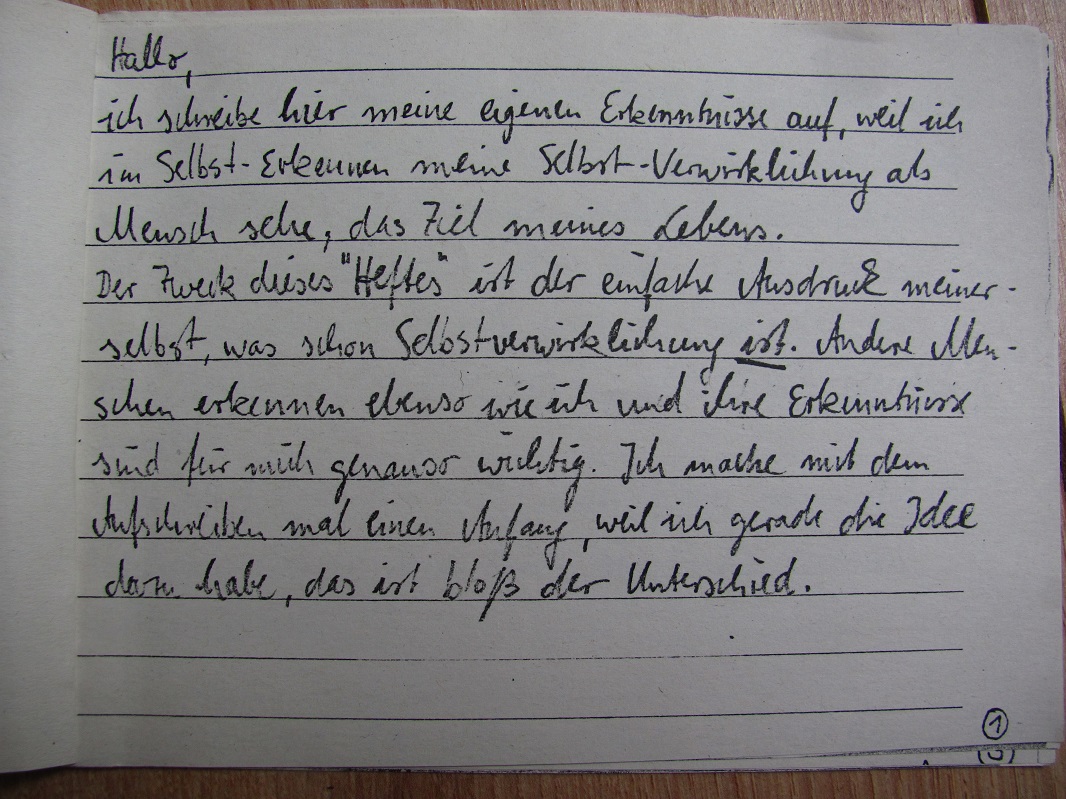 Hallo,
ich schreibe hier meine eigenen Erkenntnisse auf, weil ich
im Selbst-Erkennen meine Selbst-Verwirklichung als
Mensch sehe, das Ziel meines Lebens.
Der Zweck dieses "Heftes" ist der einfache Ausdruck meiner-
selbst, was schon Selbstverwirklichung ist. Andere Men-
schen erkennen ebenso wie ich und ihre Erkenntnisse
sind für mich genauso wichtig. Ich mache mit dem
Aufschreiben mal einen Anfang, weil ich gerade die Idee
dazu habe, das ist bloß der Unterschied.
1